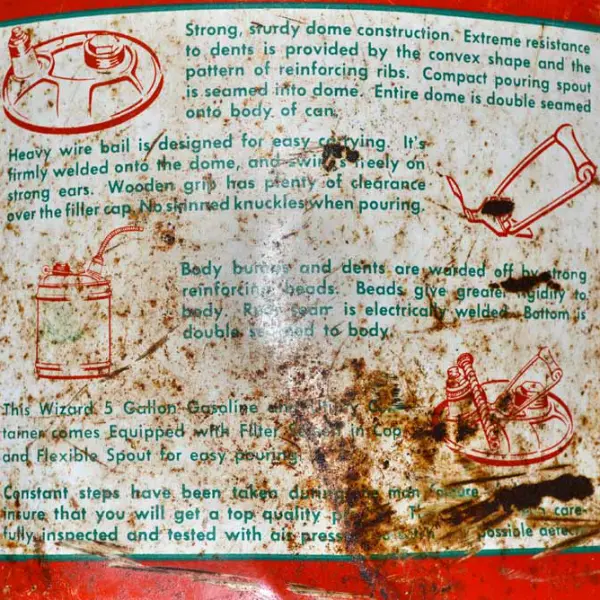 Strong, sturdy dome construction. Extreme resistance
to dents is provided by the convex shape and the
pattern of reinforcing ribs. Compact pouring spout
is seamed into dome. Entire dome is double seamed
onto body of can.
Heavy wire bail is designed for easy carrying. It's
firmly welded onto the dome, and swings freely on
strong ears. Wooden grip has plenty of clearance
over the filler cap. No skinned knuckles when pouring.
Body bumps and dents are warded off by strong
reinforcing beads. Beads give greater rigidity to
body. seam is electrically welded. Bottom is
double seamed to body.
This Wizard 5 Gallon Gasoline and Utility Con-
tainer comes Equipped with Filter Screen in Cap
and Flexible Spout for easy pouring.
Constant steps have been taken during the
insure that you will get a top quality care-
fully inspected and tested with air possible